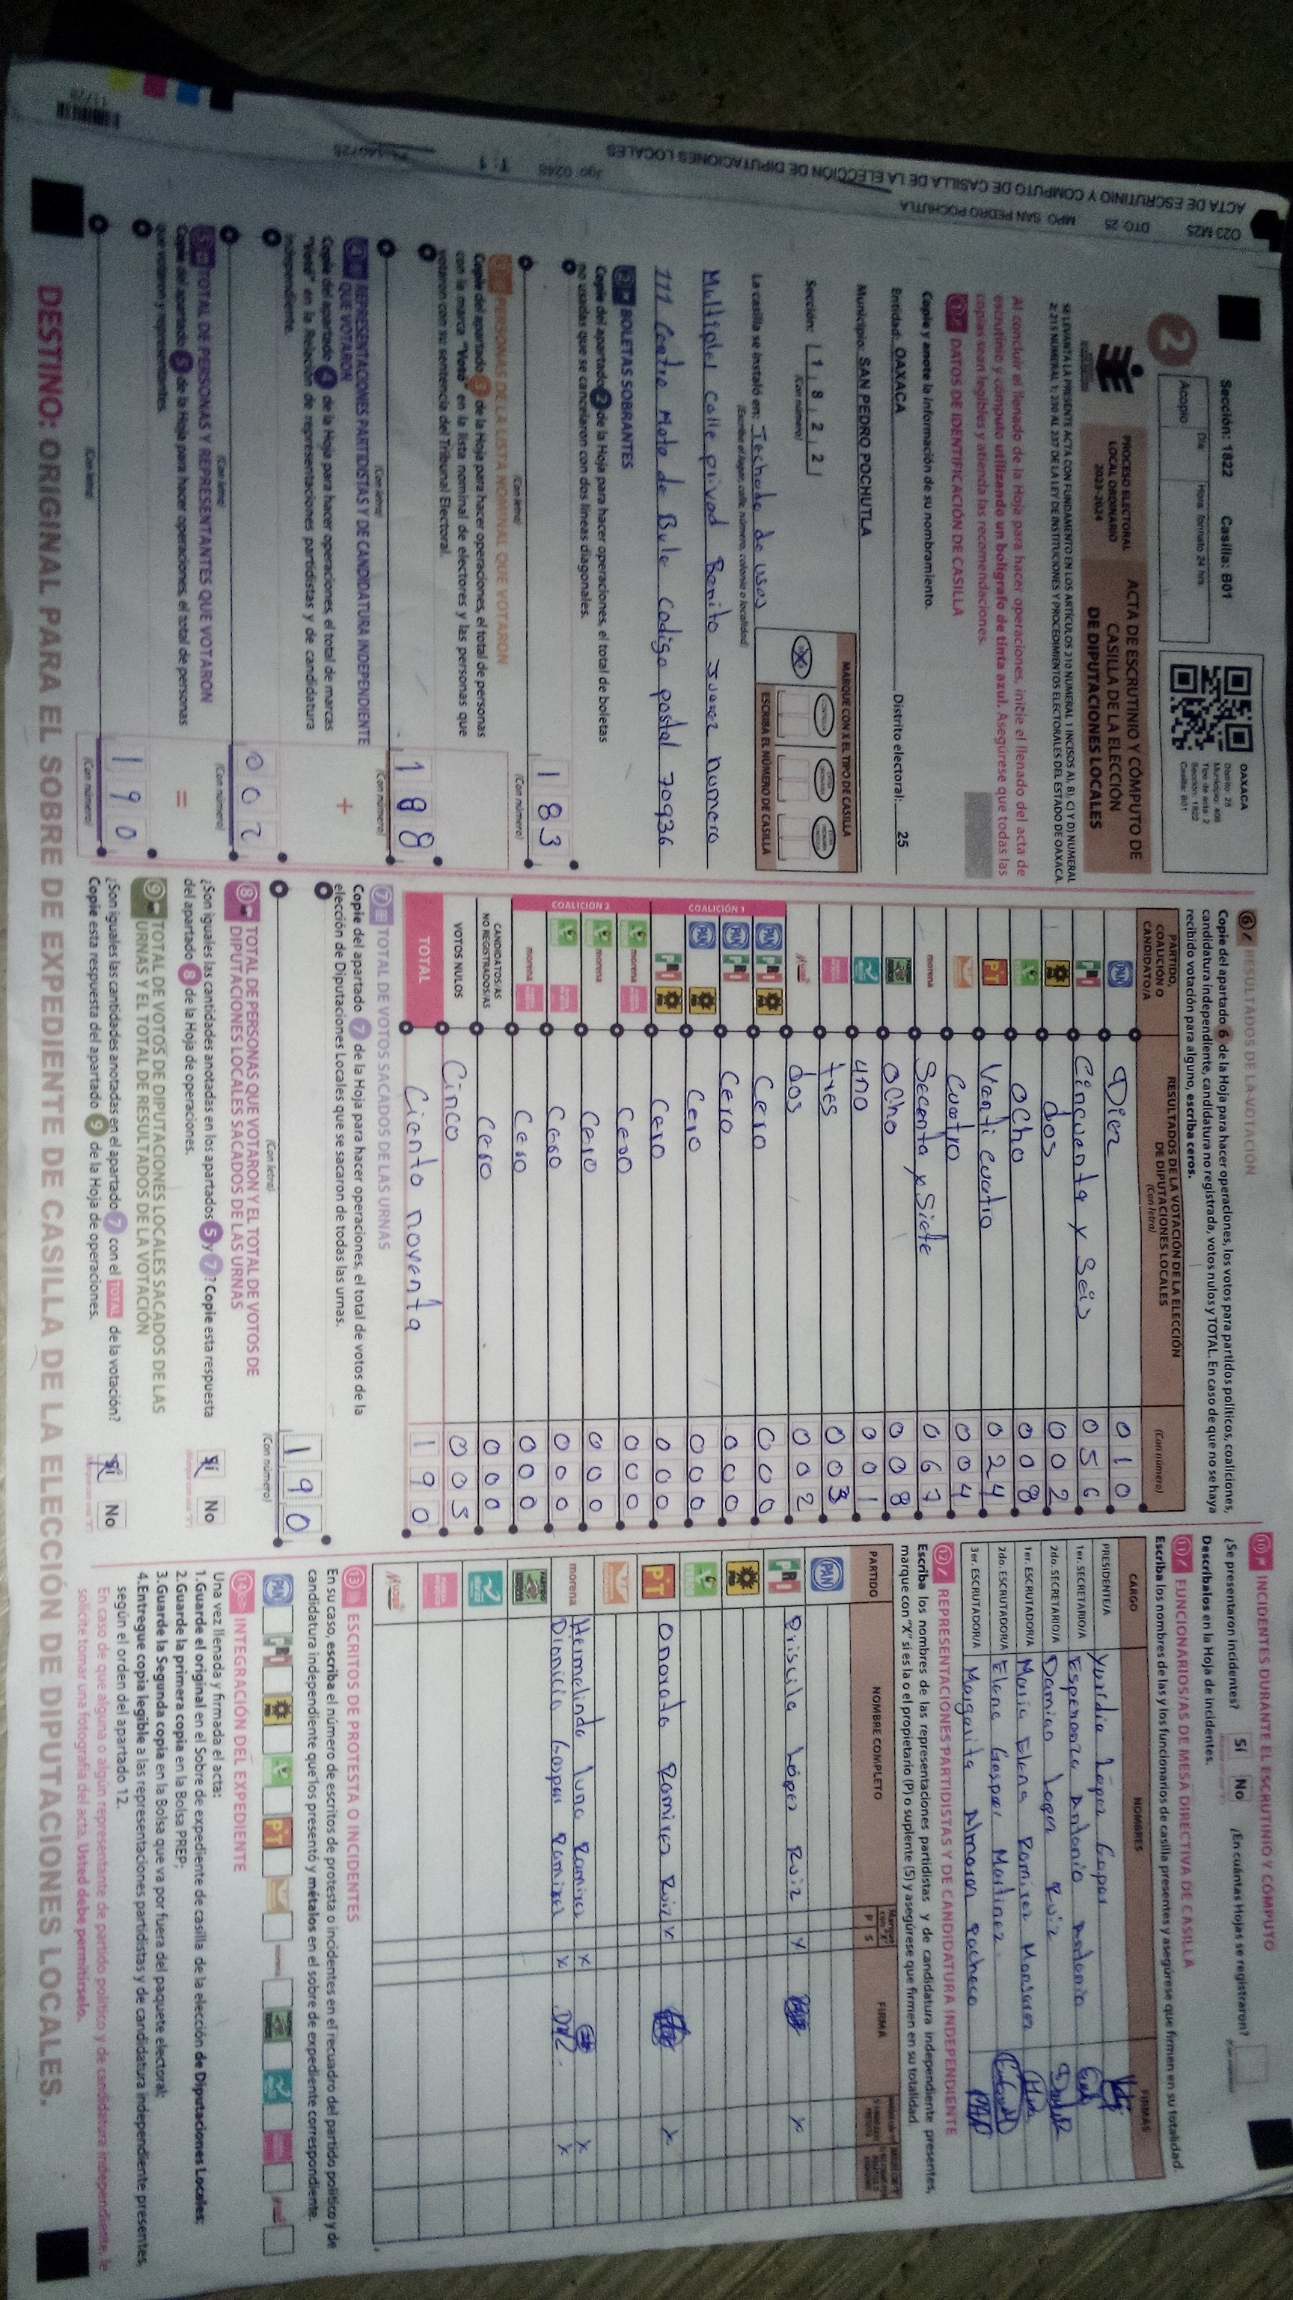 Sección: 1822 Casilla: B01
2
Acopio Día Hora: formato 24 hrs
OAXACA
Distrito: 25
Tipo de acta: 2
Sección: 1822
Casilla: B01
PROCESO ELECTORAL
LOCAL ORDINARIO
2023-2024
ACTA DE ESCRUTINIO Y CÓMPUTO DE
CASILLA DE LA ELECCIÓN
DE DIPUTACIONES LOCALES
Al concluir el llenado de la Hoja para hacer operaciones, inicie el llenado del acta de
escrutinio y cómputo utilizando un bolígrafo de tinta azul. Asegúrese que todas las
copias sean legibles y atienda las recomendaciones.
1 DATOS DE IDENTIFICACIÓN DE CASILLA
Copie y anote la información de su nombramiento.
Entidad: OAXACA Distrito electoral: 25
Municipio: SAN PEDRO POCHUTLA
Sección: 1 8 2 2
(Con número)
MARQUE CON X EL TIPO DE CASILLA
ESCRIBA EL NÚMERO DE CASILLA
La casilla se instaló en: Techado de usos
(Escriba el lugar, calle, número, colonia o localidad)
Multiples Calle privad Benito Juarez numero
111 Centro Mate de Bule codigo postal 70936
2 BOLETAS SOBRANTES
Copie del apartado 2 de la Hoja para hacer operaciones, el total de boletas
no usadas que se cancelaron con dos líneas diagonales.
183
(Con letra) (Con número)
3 PERSONAS DE LA LISTA NOMINAL QUE VOTARON
Copie del apartado 3 de la Hoja para hacer operaciones, el total de personas
con la marca "Votó" en la lista nominal de electores y las personas que
votaron con su sentencia del Tribunal Electoral.
188
(Con letra) (Con número)
4 REPRESENTACIONES PARTIDISTAS Y DE CANDIDATURA INDEPENDIENTE
QUE VOTARON
Copie del apartado 4 de la Hoja para hacer operaciones, el total de marcas
"Votó" en la Relación de representaciones partidistas y de candidatura
independiente.
+
002
(Con letra) (Con número)
5 TOTAL DE PERSONAS Y REPRESENTANTES QUE VOTARON
Copie del apartado 5 de la Hoja para hacer operaciones, el total de personas
que votaron y representantes.
=
190
(Con letra) (Con número)
6 RESULTADOS DE LA VOTACIÓN
Copie del apartado 6 de la Hoja para hacer operaciones, los votos para partidos políticos, coaliciones,
candidatura independiente, candidatura no registrada, votos nulos y TOTAL. En caso de que no se haya
recibido votación para alguno, escriba ceros.
PARTIDO, COALICIÓN O CANDIDATO/A RESULTADOS DE LA VOTACIÓN DE LA ELECCIÓN DE DIPUTACIONES LOCALES (Con letra) (Con número)
PAN Diez 010
PRI Cincuenta y Seis 056
PRD dos 002
Ocho 008
PT Venti cuatro 024
Cuatro 004
morena Secenta y Siete 067
Ocho 008
uno 001
tres 003
dos 002
COALICIÓN 1
PAN PRI PRD Cero 000
PAN PRI Cero 000
PAN PRD Cero 000
PRI PRD Cero 000
COALICIÓN 2
morena Cero 000
morena Cero 000
Cero 000
morena Cero 000
CANDIDATOS/AS NO REGISTRADOS/AS Cero 000
VOTOS NULOS Cinco 005
TOTAL Ciento noventa 190
7 TOTAL DE VOTOS SACADOS DE LAS URNAS
Copie del apartado 7 de la Hoja para hacer operaciones, el total de votos de la
elección de Diputaciones Locales que se sacaron de todas las urnas.
190
(Con letra) (Con número)
8 TOTAL DE PERSONAS QUE VOTARON Y EL TOTAL DE VOTOS DE
DIPUTACIONES LOCALES SACADOS DE LAS URNAS
¿Son iguales las cantidades anotadas en los apartados 5 y 7? Copie esta respuesta
del apartado 8 de la Hoja de operaciones.
Sí No
9 TOTAL DE VOTOS DE DIPUTACIONES LOCALES SACADOS DE LAS
URNAS Y EL TOTAL DE RESULTADOS DE LA VOTACIÓN
¿Son iguales las cantidades anotadas en el apartado 7 con el TOTAL de la votación?
Copie esta respuesta del apartado 9 de la Hoja de operaciones.
Sí No
10 INCIDENTES DURANTE EL ESCRUTINIO Y CÓMPUTO
¿Se presentaron incidentes? Sí No ¿En cuántas Hojas se registraron?
Descríbalos en la Hoja de incidentes.
11 FUNCIONARIOS/AS DE MESA DIRECTIVA DE CASILLA
Escriba los nombres de las y los funcionarios de casilla presentes y asegúrese que firmen en su totalidad.
CARGO NOMBRES FIRMAS
PRESIDENTE/A López Gaspar
1er. SECRETARIO/A Esperanza Antonio Antonio
2do. SECRETARIO/A Damian Ruiz
1er. ESCRUTADOR/A Maria Elena Ramirez
2do. ESCRUTADOR/A Elena Gaspar Martinez
3er. ESCRUTADOR/A Margarita Almaraz Pacheco
12 REPRESENTACIONES PARTIDISTAS Y DE CANDIDATURA INDEPENDIENTE
Escriba los nombres de las representaciones partidistas y de candidatura independiente presentes,
marque con "X" si es la o el propietario (P) o suplente (S) y asegúrese que firmen en su totalidad.
PARTIDO NOMBRE COMPLETO P S FIRMA
PAN
PRI Priscila López Ruiz x x
PRD
PT Onorato Ramirez Ruiz x x
morena Hermelinda Luna Ramirez x x
Dionicia Gaspar Ramirez x x
13 ESCRITOS DE PROTESTA O INCIDENTES
En su caso, escriba el número de escritos de protesta o incidentes en el recuadro del partido político y de
candidatura independiente que los presentó y métalos en el sobre de expediente correspondiente.
14 INTEGRACIÓN DEL EXPEDIENTE
Una vez llenada y firmada el acta:
1.Guarde el original en el Sobre de expediente de casilla de la elección de Diputaciones Locales;
2.Guarde la primera copia en la Bolsa PREP;
3.Guarde la Segunda copia en la Bolsa que va por fuera del paquete electoral;
4.Entregue copia legible a las representaciones partidistas y de candidatura independiente presentes,
según el orden del apartado 12.
En caso de que alguna o algún representante de partido político y de candidatura independiente, le
solicite tomar una fotografía del acta. Usted debe permitírselo.
DESTINO: ORIGINAL PARA EL SOBRE DE EXPEDIENTE DE CASILLA DE LA ELECCIÓN DE DIPUTACIONES LOCALES.
ACTA DE ESCRUTINIO Y COMPUTO DE CASILLA DE LA ELECCIÓN DE DIPUTACIONES LOCALES
023 M25 DTO 25 MPO SAN PEDRO POCHUTLA